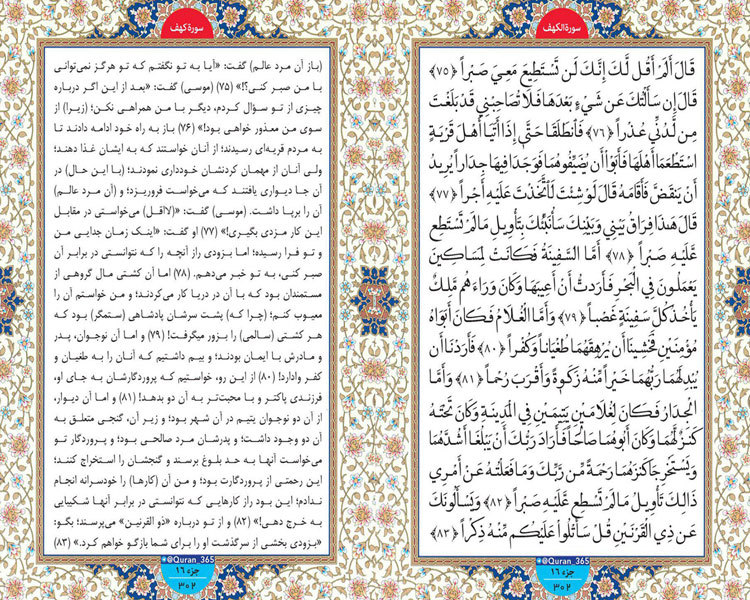 سورة الكهف
قَالَ أَلَمْ أَقُل لَّكَ إِنَّكَ لَن تَسْتَطِيعَ مَعِيَ صَبْراً ﴿٧٥﴾
قَالَ إِن سَأَلْتُكَ عَن شَيْءٍ بَعْدَهَا فَلَا تُصَاحِبْنِي قَدْ بَلَغْتَ
مِن لَّدُنِّي عُذْراً ﴿٧٦﴾ فَانطَلَقَا حَتَّى إِذَا أَتَيَا أَهْلَ قَرْيَةٍ
اسْتَطْعَمَا أَهْلَهَا فَأَبَوْا أَن يُضَيِّفُوهُمَا فَوَجَدَا فِيهَا جِدَاراً يُرِيدُ
أَن يَنقَضَّ فَأَقَامَهُ قَالَ لَوْ شِئْتَ لَاتَّخَذْتَ عَلَيْهِ أَجْراً ﴿٧٧﴾
قَالَ هَذَا فِرَاقُ بَيْنِي وَبَيْنِكَ سَأُنَبِّئُكَ بِتَأْوِيلِ مَا لَمْ تَسْتَطِع
عَّلَيْهِ صَبْراً ﴿٧٨﴾ أَمَّا السَّفِينَةُ فَكَانَتْ لِمَسَاكِينَ
يَعْمَلُونَ فِي الْبَحْرِ فَأَرَدتُّ أَنْ أَعِيبَهَا وَكَانَ وَرَاءَهُم مَّلِكٌ
يَأْخُذُ كُلَّ سَفِينَةٍ غَصْباً ﴿٧٩﴾ وَأَمَّا الْغُلَامُ فَكَانَ أَبَوَاهُ
مُؤْمِنَيْنِ فَخَشِينَا أَن يُرْهِقَهُمَا طُغْيَاناً وَكُفْراً ﴿٨٠﴾ فَأَرَدْنَا أَن
يُبْدِلَهُمَا رَبُّهُمَا خَيْراً مِّنْهُ زَكَوةً وَأَقْرَبَ رُحْماً ﴿٨١﴾ وَأَمَّا
الْجِدَارُ فَكَانَ لِغُلَامَيْنِ يَتِيمَيْنِ فِي الْمَدِينَةِ وَكَانَ تَحْتَهُ
كَنزٌ لَّهُمَا وَكَانَ أَبُوهُمَا صَالِحاً فَأَرَادَ رَبُّكَ أَنْ يَبْلُغَا أَشُدَّهُمَا
وَيَسْتَخْرِجَا كَنزَهُمَا رَحْمَةً مِّن رَّبِّكَ وَمَا فَعَلْتُهُ عَنْ أَمْرِي
ذَالِكَ تَأْوِيلُ مَا لَمْ تَسْطِع عَّلَيْهِ صَبْراً ﴿٨٢﴾ وَيَسْأَلُونَكَ
عَن ذِي الْقَرْنَيْنِ قُلْ سَأَتْلُوا عَلَيْكُم مِّنْهُ ذِكْراً ﴿٨٣﴾
@Quran_365
جزء ١٦
٣٠٢
سورة كهف
(باز آن مرد عالم) گفت: «آیا به تو نگفتم که تو هرگز نمی‌توانی
با من صبر کنی؟!» (۷۵) (موسی) گفت: «بعد از این اگر درباره
چیزی از تو سؤال کردم، دیگر با من همراهی نکن؛ (زیرا) از
سوی من معذور خواهی بود!» (۷۶) باز به راه خود ادامه دادند تا
به مردم قریه‌ای رسیدند؛ از آنان خواستند که به ایشان غذا دهند؛
ولی آنان از مهمان کردنشان خودداری نمودند؛ (با این حال) در
آن جا دیواری یافتند که می‌خواست فروریزد؛ و (آن مرد عالم)
آن را برپا داشت. (موسی) گفت: «(لااقل) می‌خواستی در مقابل
این کار مزدی بگیری!» (۷۷) او گفت: «اینک زمان جدایی من
و تو فرا رسیده؛ اما بزودی راز آنچه را که نتوانستی در برابر آن
صبر کنی، به تو خبر می‌دهم. (۷۸) اما آن کشتی مال گروهی از
مستمندان بود که با آن در دریا کار می‌کردند؛ و من خواستم آن را
معیوب کنم؛ (چرا که) پشت سرشان پادشاهی (ستمگر) بود که
هر کشتی (سالمی) را بزور میگرفت! (۷۹) و اما آن نوجوان، پدر
و مادرش با ایمان بودند؛ و بیم داشتیم که آنان را به طغیان و
کفر وادارد! (۸۰) از این رو، خواستیم که پروردگارشان به جای او،
فرزندی پاکتر و با محبت‌تر به آن دو بدهد! (۸۱) و اما آن دیوار،
از آن دو نوجوان یتیم در آن شهر بود؛ و زیر آن، گنجی متعلق به
آن دو وجود داشت؛ و پدرشان مرد صالحی بود؛ و پروردگار تو
می‌خواست آنها به حد بلوغ برسند و گنجشان را استخراج کنند؛
این رحمتی از پروردگارت بود؛ و من آن (کارها) را خودسرانه انجام
ندادم؛ این بود راز کارهایی که نتوانستی در برابر آنها شکیبایی
به خرج دهی!» (۸۲) و از تو درباره «ذو القرنین» می‌پرسند؛ بگو:
«بزودی بخشی از سرگذشت او را برای شما بازگو خواهم کرد.» (۸۳)
@Quran_365
جزء ١٦
٣٠٢